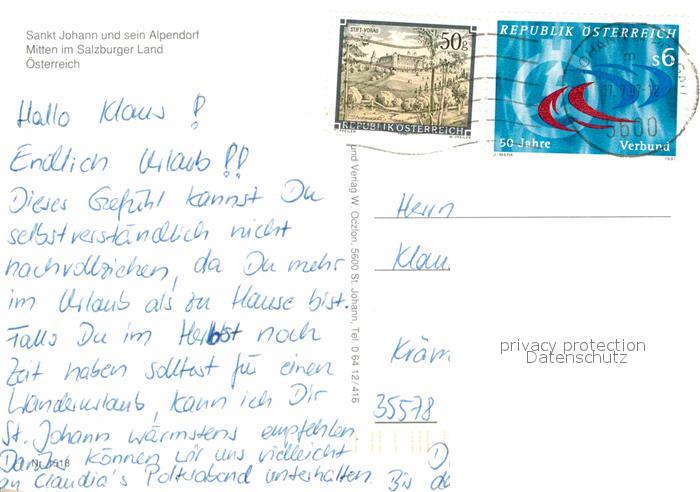 Sankt Johann und sein Alpendorf
Mitten im Salzburger Land
Österreich
STIFT VORAU
50g
REPUBLIK ÖSTERREICH
REPUBLIK ÖSTERREICH
s6
50 Jahre Verbund
J. MARK 1997
5600
Hallo Klaus !
Endlich Urlaub !!
Dieses Gefühl kannst Du
selbstverständlich nicht
nachvollziehen, da Du mehr
im Urlaub als zu Hause bist.
Falls Du im Herbst noch
Zeit haben solltest für einen
Wanderurlaub, kann ich Dir
St. Johann wärmstens empfehlen.
können wir uns vielleicht
an Claudia's Polterabend unterhalten. Bis d
und Verlag W. Oczlon, 5600 St. Johann, Tel. 0 64 12 / 416
Herrn
Klau
Kräm
35578
D
privacy protection
Datenschutz